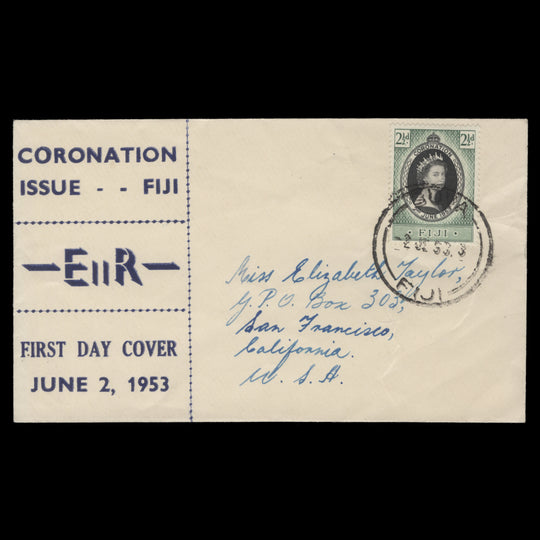 CORONATION
ISSUE - - FIJI
—EIIR—
FIRST DAY COVER
JUNE 2, 1953
2½d 2½d
CORONATION
JUNE 1953
• FIJI •
SUVA
2 JE 53. 3
FIJI
Miss Elizabeth Taylor,
G. P. O. Box 303,
San Francisco,
California.
U. S. A.